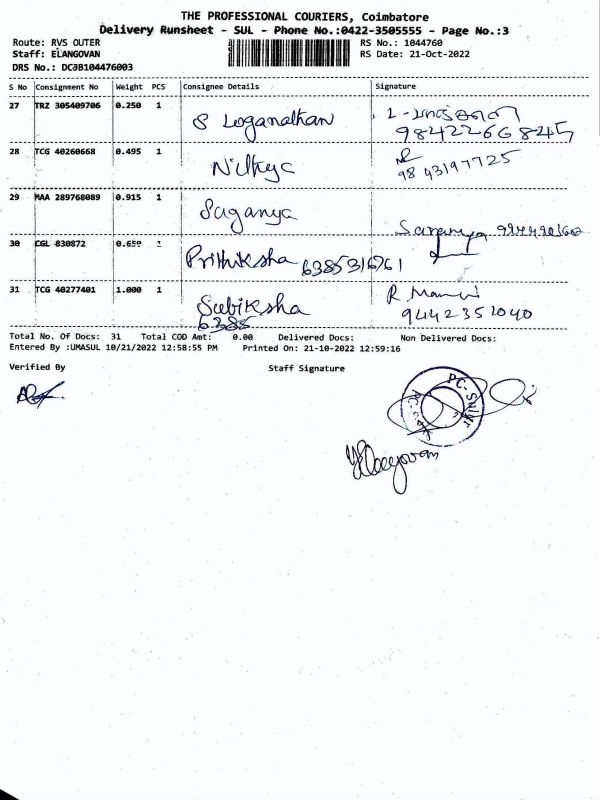 THE PROFESSIONAL COURIERS, Coimbatore
Delivery Runsheet - SUL - Phone No.:0422-3505555 - Page No.:3
Route: RVS OUTER
RS No.: 1044760
Staff: ELANGOVAN
RS Date: 21-Oct-2022
DRS No.: DC3B104476003
S No Consignment No Weight PCS Consignee Details Signature
27 TRZ 305409706 0.250 1 S Loganathan
9842266845
28 TCG 40260668 0.495 1 Nithya
9843197725
29 MAA 289768089 0.915 1 Saganya Saranya
30 CGL 830872 0.650 1 Prithiksha 6385316761
31 TCG 40277401 1.000 1 Subiksha R.
6385 9442351040
Total No. Of Docs: 31 Total COD Amt: 0.00 Delivered Docs: Non Delivered Docs:
Entered By :UMASUL 10/21/2022 12:58:55 PM Printed On: 21-10-2022 12:59:16
Verified By Staff Signature
PC-Sulur